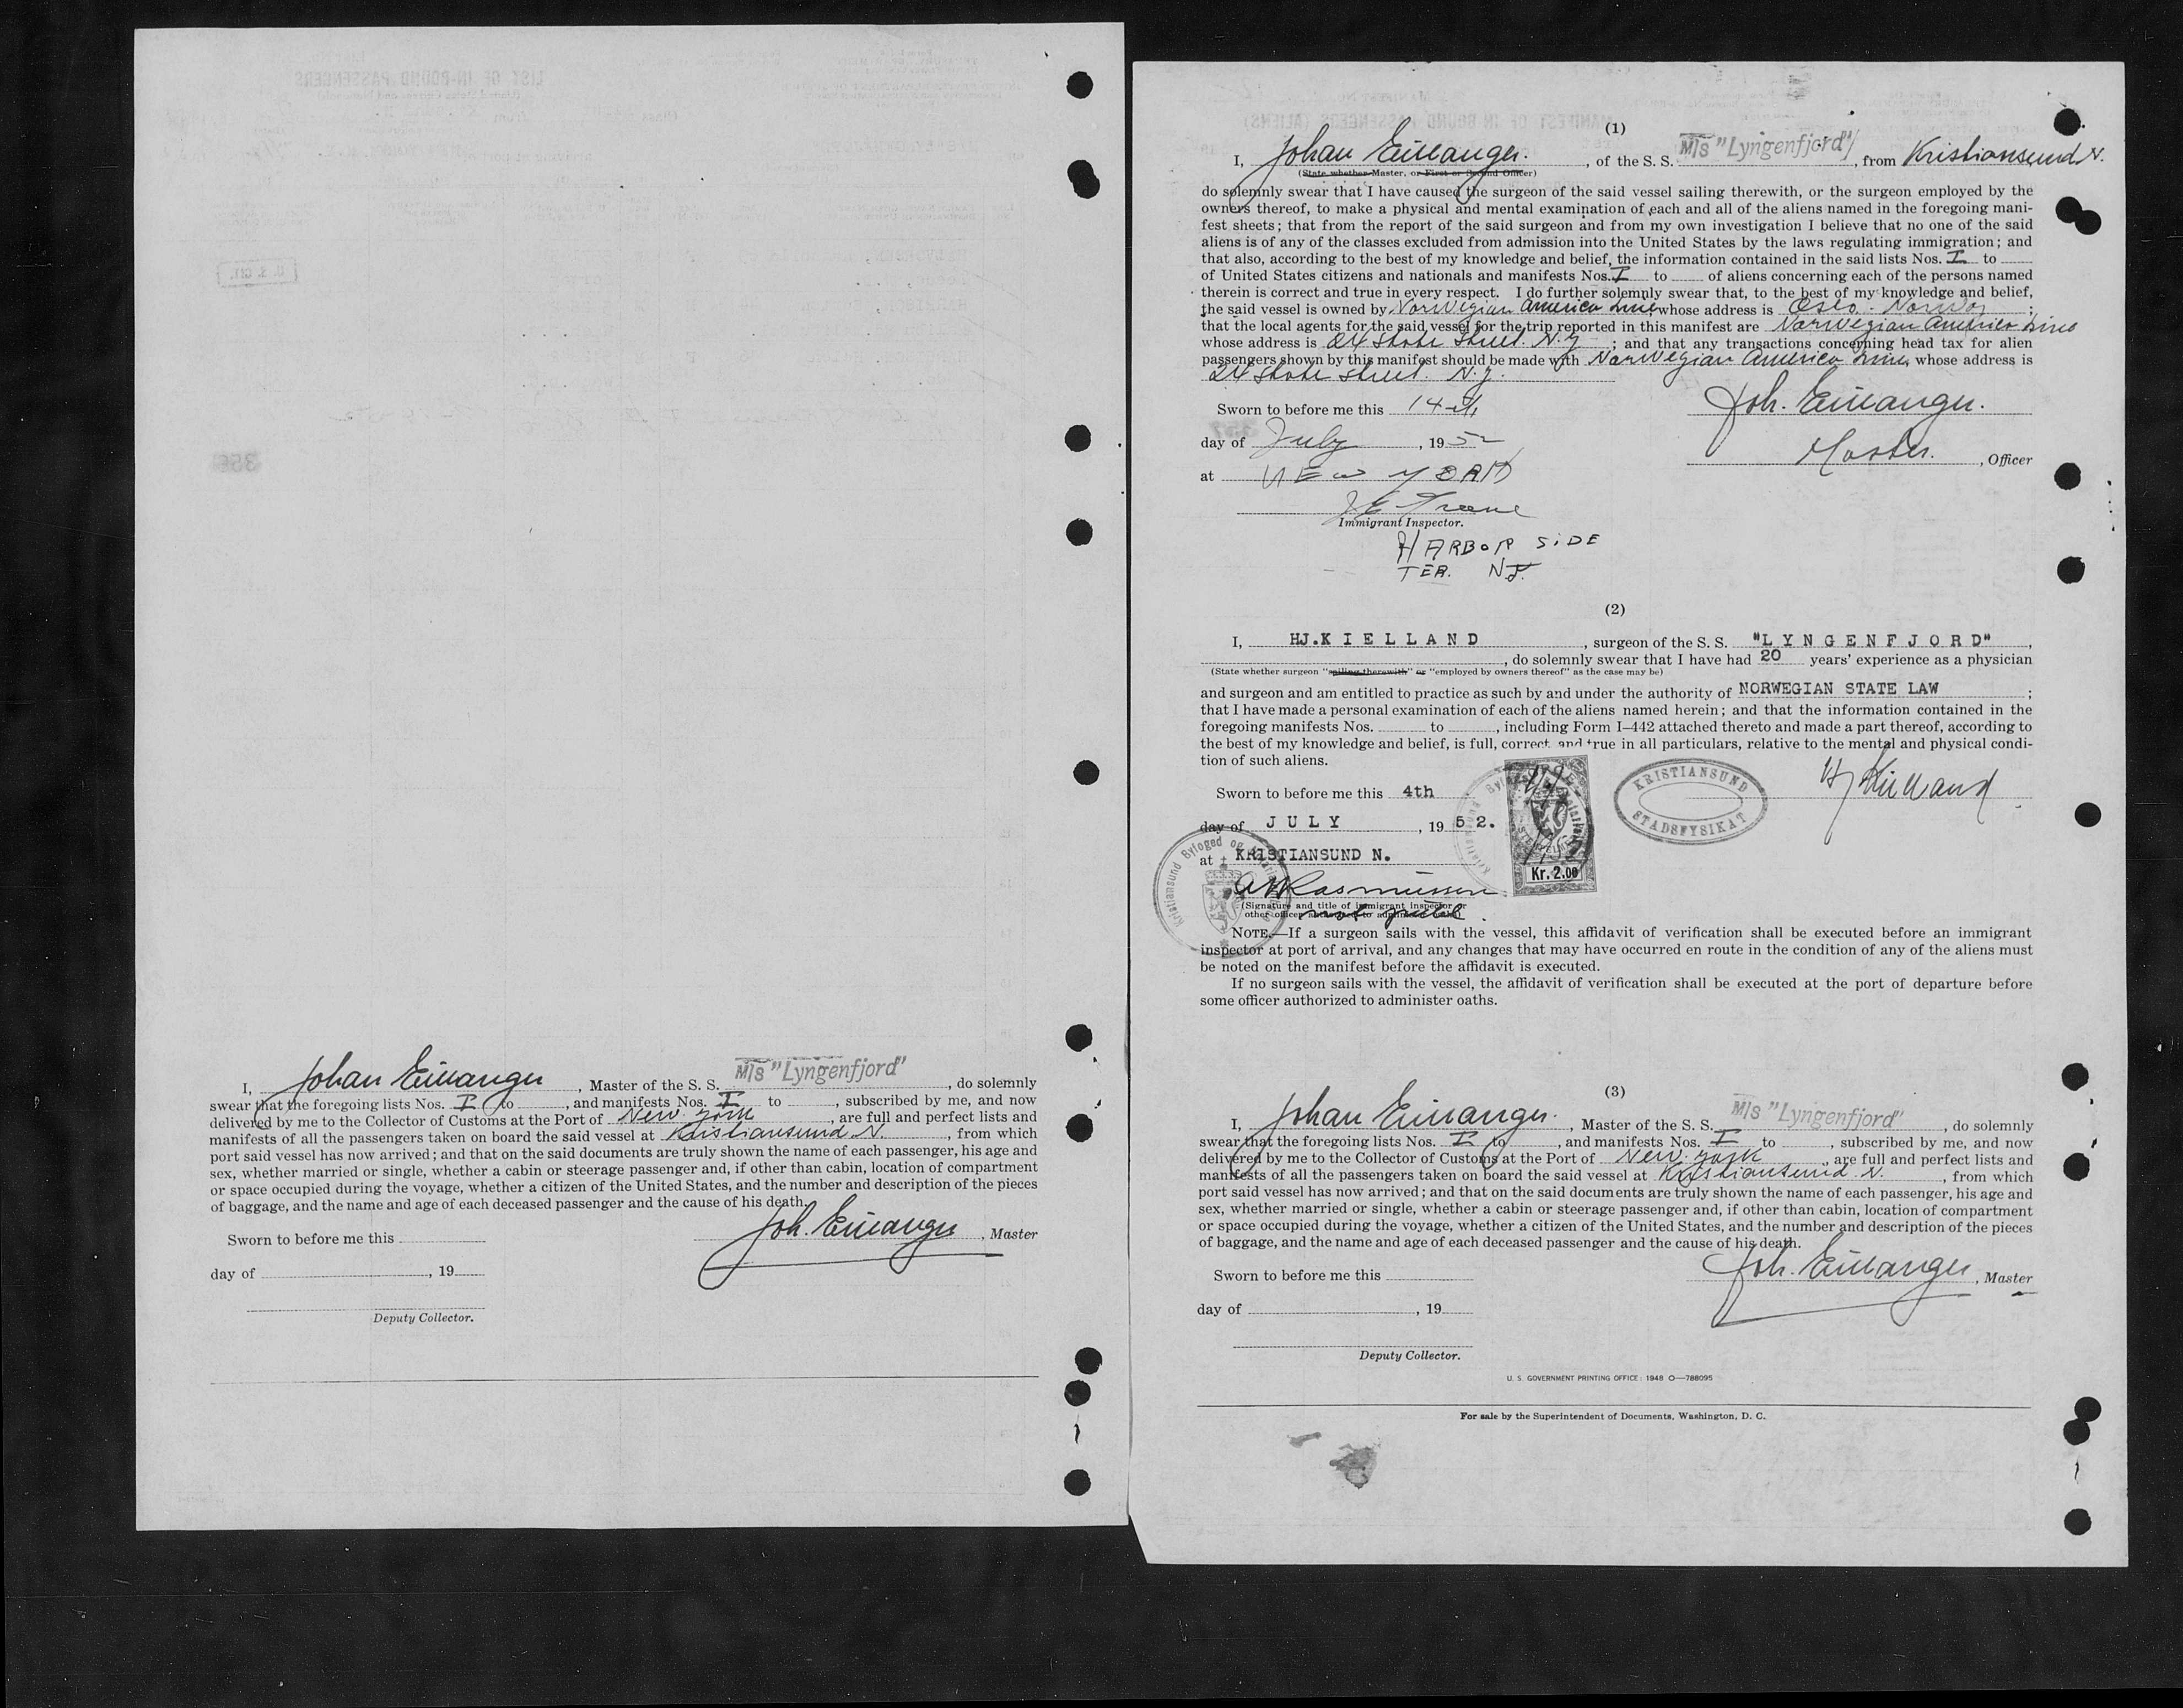 I, Johan Eillanger, Master of the S. S. M/s "Lyngenfjord", do solemnly
swear that the foregoing lists Nos. I to , and manifests Nos. I to , subscribed by me, and now
delivered by me to the Collector of Customs at the Port of New York, are full and perfect lists and
manifests of all the passengers taken on board the said vessel at Kristiansund N., from which
port said vessel has now arrived; and that on the said documents are truly shown the name of each passenger, his age and
sex, whether married or single, whether a cabin or steerage passenger and, if other than cabin, location of compartment
or space occupied during the voyage, whether a citizen of the United States, and the number and description of the pieces
of baggage, and the name and age of each deceased passenger and the cause of his death.
Joh. Eillanger, Master
Sworn to before me this
day of , 19
Deputy Collector.
(1)
I, Johan Eillanger., of the S. S. M/s "Lyngenfjord", from Kristiansund N.
(State whether Master, or First or Second Officer)
do solemnly swear that I have caused the surgeon of the said vessel sailing therewith, or the surgeon employed by the
owners thereof, to make a physical and mental examination of each and all of the aliens named in the foregoing mani-
fest sheets; that from the report of the said surgeon and from my own investigation I believe that no one of the said
aliens is of any of the classes excluded from admission into the United States by the laws regulating immigration; and
that also, according to the best of my knowledge and belief, the information contained in the said lists Nos. I to
of United States citizens and nationals and manifests Nos. I to of aliens concerning each of the persons named
therein is correct and true in every respect. I do further solemnly swear that, to the best of my knowledge and belief,
the said vessel is owned by Norwegian America Line whose address is Oslo. Norway ;
that the local agents for the said vessel for the trip reported in this manifest are Norwegian America Line
whose address is 24 State Street. N.Y ; and that any transactions concerning head tax for alien
passengers shown by this manifest should be made with Norwegian America Line, whose address is
24 State Street. N.Y.
Sworn to before me this 14th
Joh. Eillanger.
day of July, 1952
Master., Officer
at NEW YORK
Immigrant Inspector.
HARBOR SIDE
TER. N.J.
(2)
I, HJ.KIELLAND, surgeon of the S. S. "LYNGENFJORD",
, do solemnly swear that I have had 20 years' experience as a physician
(State whether surgeon "sailing therewith" or "employed by owners thereof" as the case may be)
and surgeon and am entitled to practice as such by and under the authority of NORWEGIAN STATE LAW ;
that I have made a personal examination of each of the aliens named herein; and that the information contained in the
foregoing manifests Nos. to , including Form I–442 attached thereto and made a part thereof, according to
the best of my knowledge and belief, is full, correct and true in all particulars, relative to the mental and physical condi-
tion of such aliens.
Hj Kielland
KRISTIANSUND STADSFYSIKAT
Sworn to before me this 4th
day of JULY, 1952.
at KRISTIANSUND N.
Kr. 2.00
Kristiansund Byfoged og
Rasmussen
(Signature and title of immigrant inspector or
other officer authorized to administer oaths)
NOTE.—If a surgeon sails with the vessel, this affidavit of verification shall be executed before an immigrant
inspector at port of arrival, and any changes that may have occurred en route in the condition of any of the aliens must
be noted on the manifest before the affidavit is executed.
If no surgeon sails with the vessel, the affidavit of verification shall be executed at the port of departure before
some officer authorized to administer oaths.
(3)
I, Johan Eillanger., Master of the S. S. M/s "Lyngenfjord", do solemnly
swear that the foregoing lists Nos. I to , and manifests Nos. I to , subscribed by me, and now
delivered by me to the Collector of Customs at the Port of New York, are full and perfect lists and
manifests of all the passengers taken on board the said vessel at Kristiansund N., from which
port said vessel has now arrived; and that on the said documents are truly shown the name of each passenger, his age and
sex, whether married or single, whether a cabin or steerage passenger and, if other than cabin, location of compartment
or space occupied during the voyage, whether a citizen of the United States, and the number and description of the pieces
of baggage, and the name and age of each deceased passenger and the cause of his death.
Joh. Eillanger, Master
Sworn to before me this
day of , 19
Deputy Collector.
U. S. GOVERNMENT PRINTING OFFICE: 1948 O—788095
For sale by the Superintendent of Documents, Washington, D. C.